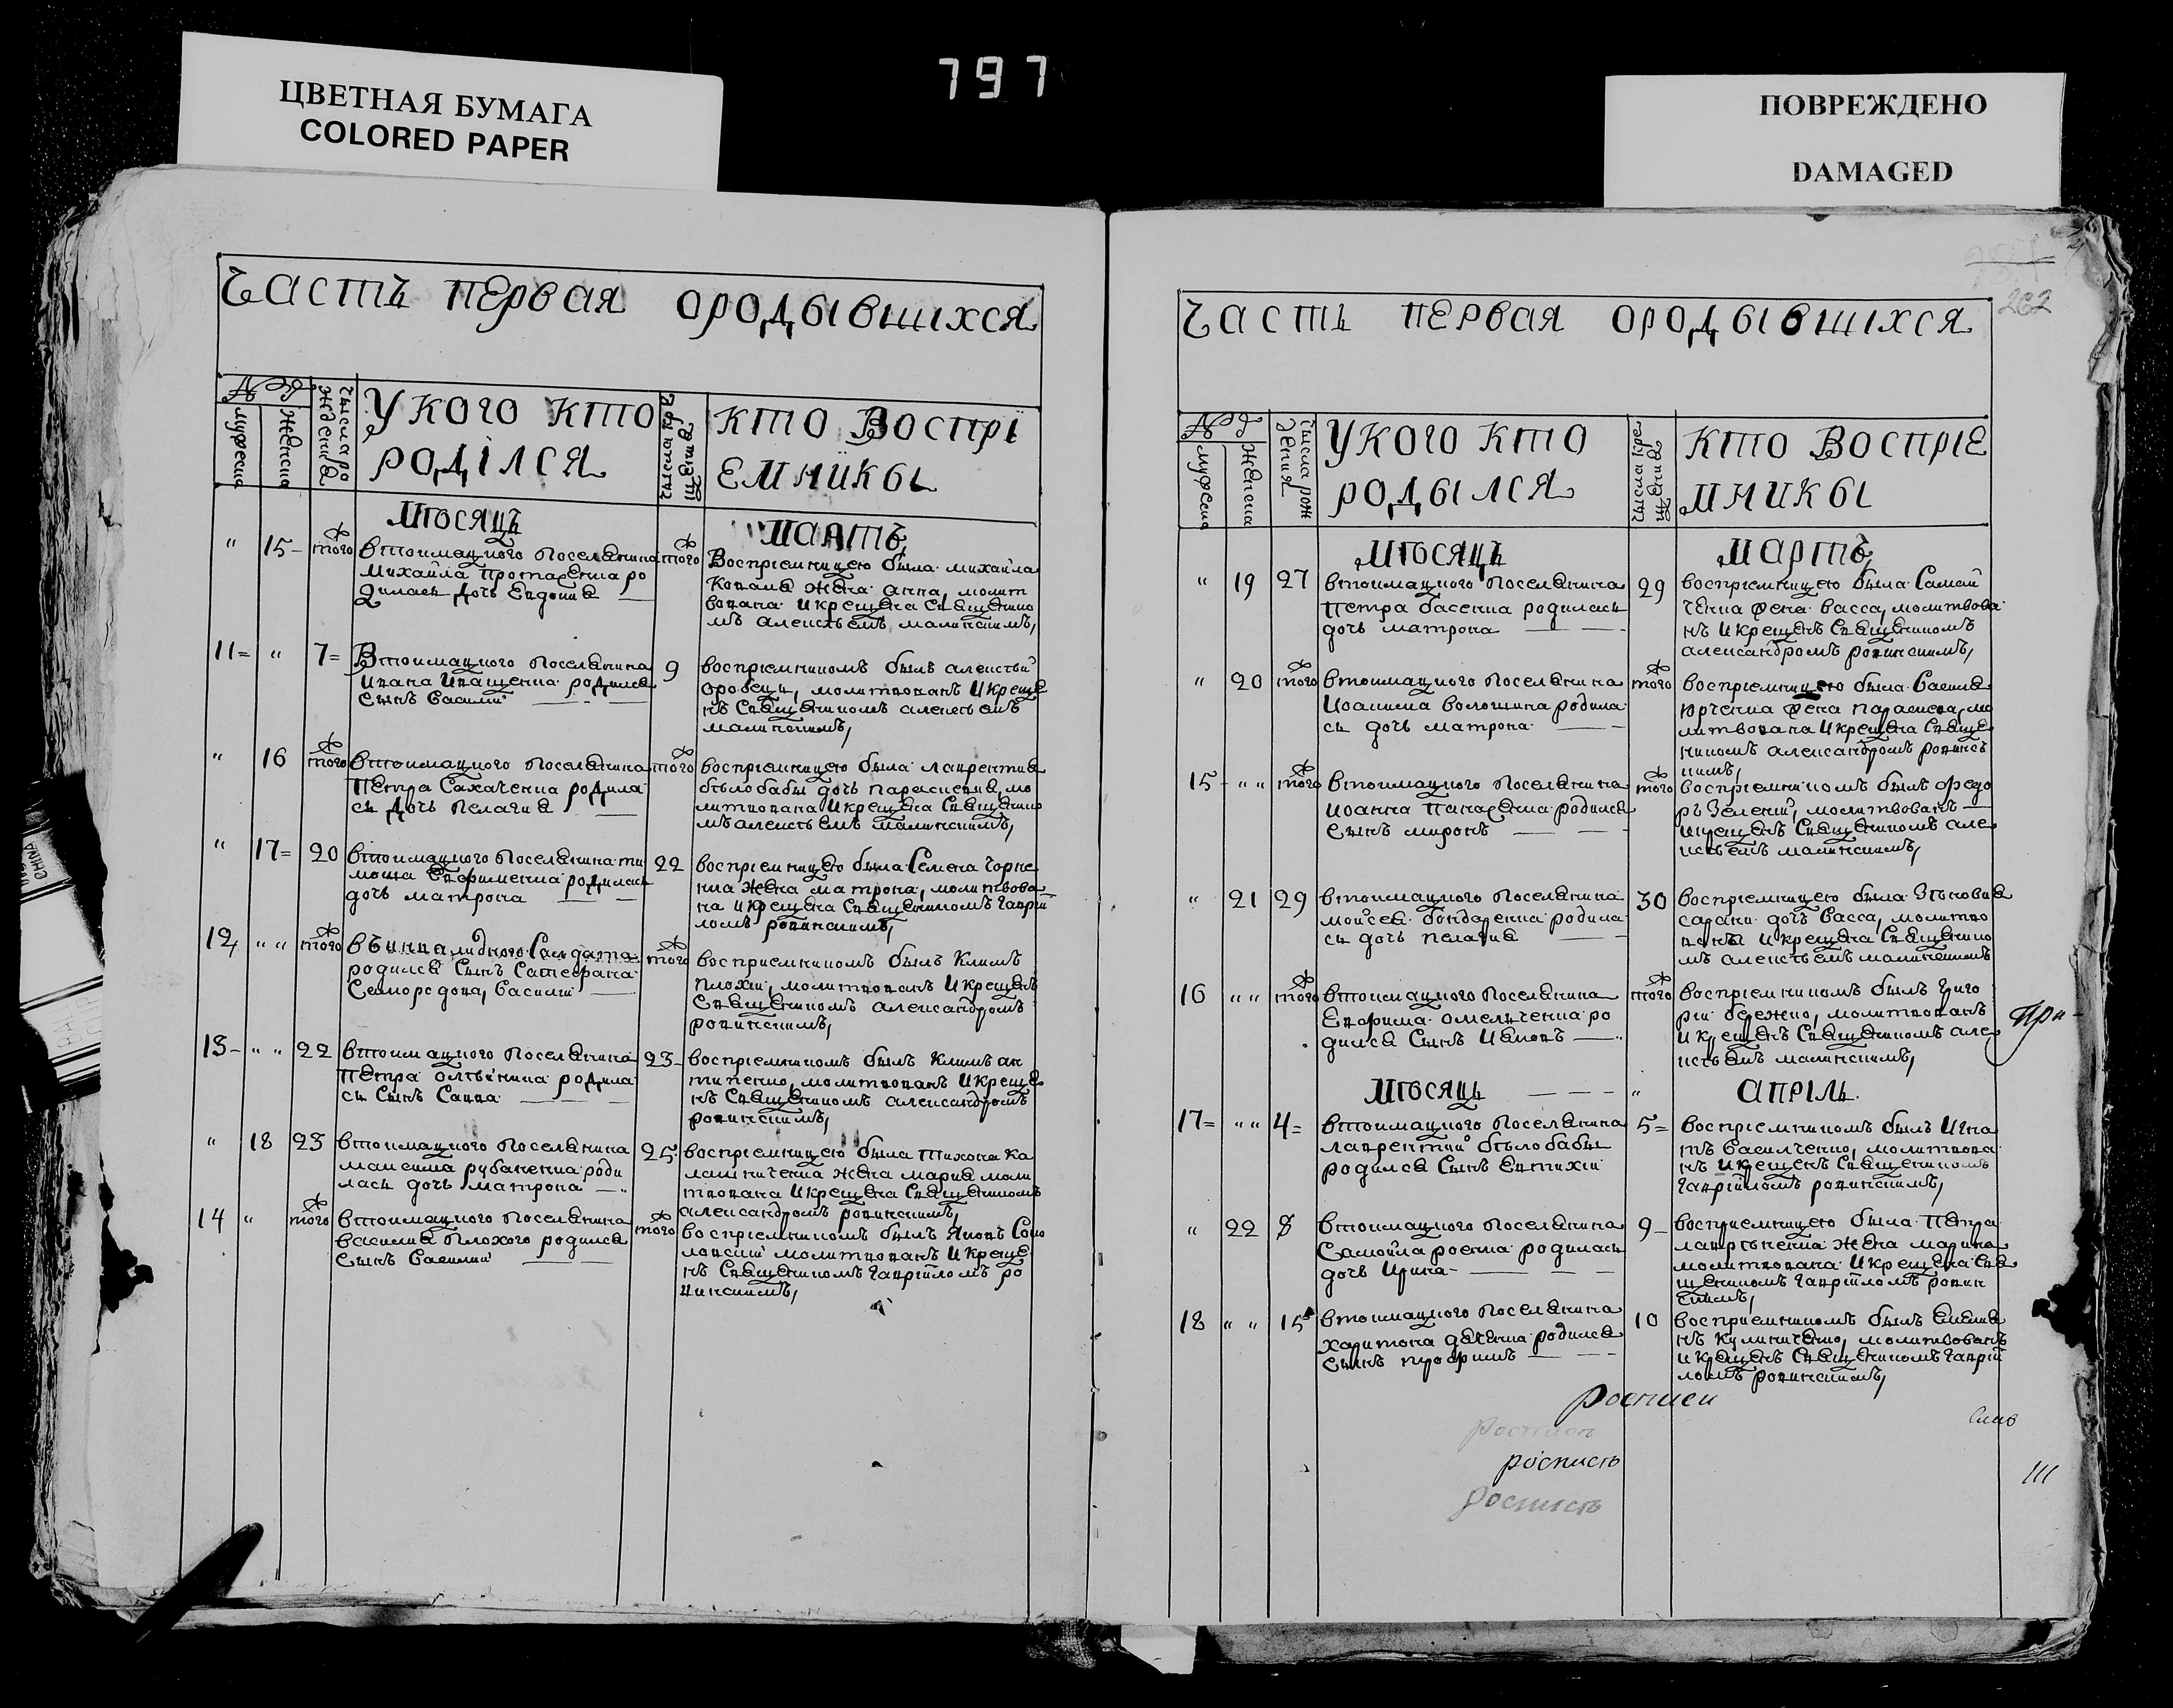 ЦВЕТНАЯ БУМАГА
COLORED PAPER
797
ПОВРЕЖДЕНО
DAMAGED
Часть первая ородывшихся
№
мужеска
женска
числа рождения
У кого кто
роділся
числа крещения
кто воспрі
емнiкы
Мѣсяцъ
Мартъ,
" 15 - того
втоимацкого поселянина
Михайла протаренка ро
дилась дочь Евдокия
того
Воспріемницею была михайла
Коваля жена анна, молит
вована и крещена Священико
мъ алексѣемъ малинскимъ,
11 = " 7 =
Втоимацкого поселянина
Ивана Иващенка родился
сынъ Василій
9
воспріемникомъ былъ алексѣй
оробецъ, молитвованъ и креще
нъ Священикомъ алексѣемъ
малинскимъ,
" 16 того
втоимацкого поселянина
Петра Сахаченка родила
сь дочь пелагия
того
воспріемницею была лаврентия
бѣлобабы дочь параскевия, мо
литвована и крещена Священико
мъ алексѣемъ малинскимъ,
" 17 = 20
втоимацкого поселянина ти
моша Евфименка родилась
дочь матрона
22
воспріемницею была Семена чорне
нка жена матрона, молитвова
на и крещена Священикомъ гаврій
ломъ ровинскимъ,
12 " " того
въ инвалидного Салдата
родился Сынъ Сатефана
Саморсдова, Василій
того
восприемникомъ былъ Климъ
плохій, молитвованъ и крещенъ
Священикомъ александромъ
ровинскимъ,
13 - " " 22
втоимацкого поселянина
Петра олѣйника родила
сь Сынъ Савва
23 -
воспріемникомъ былъ Климъ ан
типенко, молитвованъ и креще
нъ Священикомъ александромъ
ровинскимъ,
" 18 23
втоимацкого поселянина
максима рубаненка роди
лась дочь матрона
25
воспріемницею была Тихона ка
лашниченка жена мария моли
твована и крещена Священикомъ
александромъ ровинскимъ,
14 " того
втоимацкого поселянина
василия плохого родился
Сынъ Василий
того
воспріемникомъ былъ Яковъ Соко
ловскій молитвованъ и креще
нъ Священикомъ гаврійломъ ро
винскимъ,
282
Часть первая ородывшихся
№
мужеска
женска
числа рождения
У кого кто
родылся
числа крещения
кто воспріе
мникы
Мѣсяцъ
Мартъ,
" 19 27
втоимацкого поселянина
Петра басенка родилась
дочь матрона
29
воспріемницею была Самой
ченка жена васса, молитвова
нъ и крещенъ Священикомъ
александромъ ровинскимъ,
" 20 того
втоимацкого поселянина
Иоакима волошина родила
сь дочь матрона
того
воспріемницею была Василя
юрченка жена параскева, мо
литвована и крещена Священ
никомъ александромъ ровинс
кимъ,
15 - " " того
втоимацкого поселянина
иоанна панасенка родился
сынъ миронъ
того
воспріемникомъ былъ федо
ръ Зеленій, молитвованъ
и крещенъ Священикомъ але
ксѣемъ малинскимъ,
" 21 29
втоимацкого поселянина
мойсея бондаренка родила
сь дочь пелагия
30
воспріемницею была Зѣновия
сараки дочь васса, молитво
вана и крещена Священико
мъ алексѣемъ малинскимъ
16 " " того
втоимацкого поселянина
Евфима омельченка ро
дился Сынъ Иаковъ
того
воспріемникомъ былъ григо
рій бережно, молитвованъ
и крещенъ Священикомъ але
ксѣемъ малинскимъ,
при -
Мѣсяцъ
"
Апріль.
17 = " " 4 =
втоимацкого поселянина
лаврентий бѣлобабы
родился Сынъ Евтихій
5 =
воспріемникомъ былъ Игна
тъ Василченко, молитвова
нъ и крещенъ Священикомъ
гаврійломъ ровинскимъ,
" 22 8
втоимацкого поселянина
Самойла роенка родилась
дочь Ирина
9 -
восприемницею была Петра
лаврѣненка жена марина
молитвована и крещена Свя
щеникомъ гаврійломъ ровин
скимъ,
18 " " 15
втоимацкого поселянина
харитона дяченка родился
Сынъ трофимъ
10
восприемникомъ былъ Емелия
нъ кулиниченко, молитвованъ
и крещенъ Священикомъ гаврій
ломъ ровинскимъ,
роспись
роспись
роспись